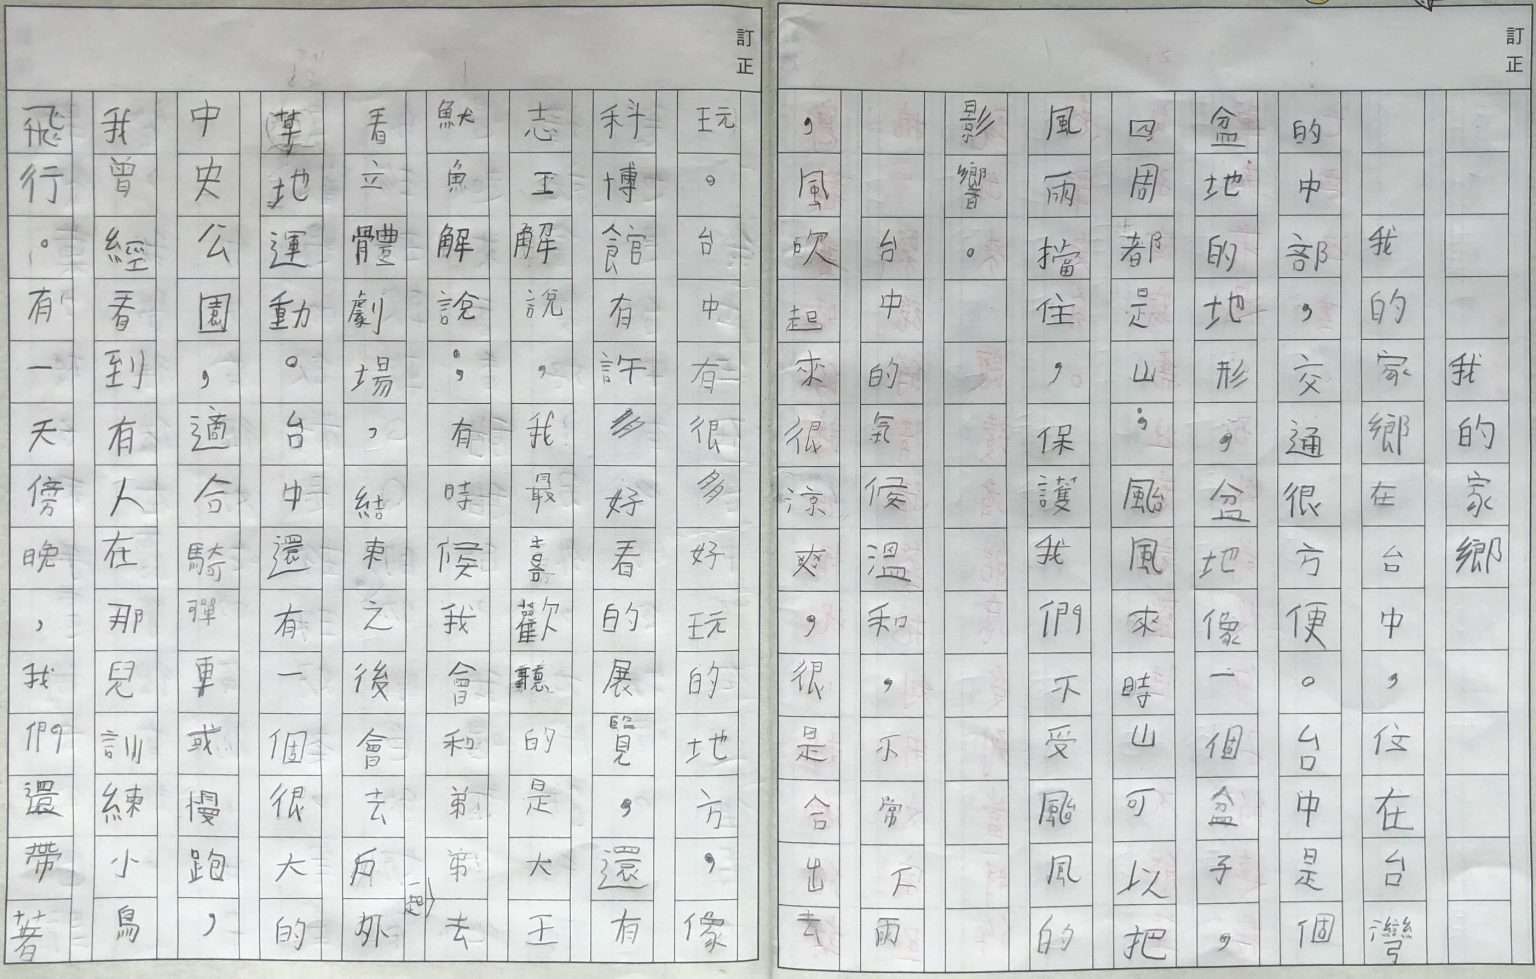 訂正
我的家鄉
我的家鄉在台中，位在台灣
的中部，交通很方便。台中是個
盆地的地形，盆地像一個盆子，
四周都是山；颱風來時山可以把
風雨擋住，保護我們不受颱風的
影響。
台中的氣候溫和，不常下雨
，風吹起來很涼爽，很是合出去
訂正
玩。台中有很多好玩的地方，像
科博館有許多好看的展覽，還有
志王解說，我最喜歡聽的是大王
魷魚解說；有時候我會和弟弟一起去
看立體劇場，結束之後會去戶外
草地運動。台中還有一個很大的
中央公園，適合騎車或慢跑，
我曾經看到有人在那兒訓練小鳥
飛行。有一天傍晚，我們還帶著